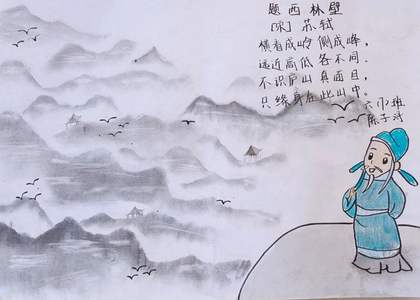 题西林壁
[宋] 苏轼
横看成岭侧成峰，
远近高低各不同．
不识庐山真面目，
只缘身在此山中．